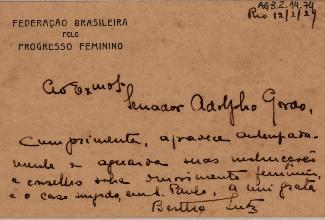 AGS.2.14.74
FEDERAÇÃO BRASILEIRA
PELO
PROGRESSO FEMININO
Rio 12/2/29
Ao Exmo.
Senador Adolpho Gordo,
Cumprimenta, agradece antecipada-
mente e aguarda suas instrucções
e conselhos sobre movimento feminino
e o caso em S. Paulo, a mui grata
Bertha Lutz